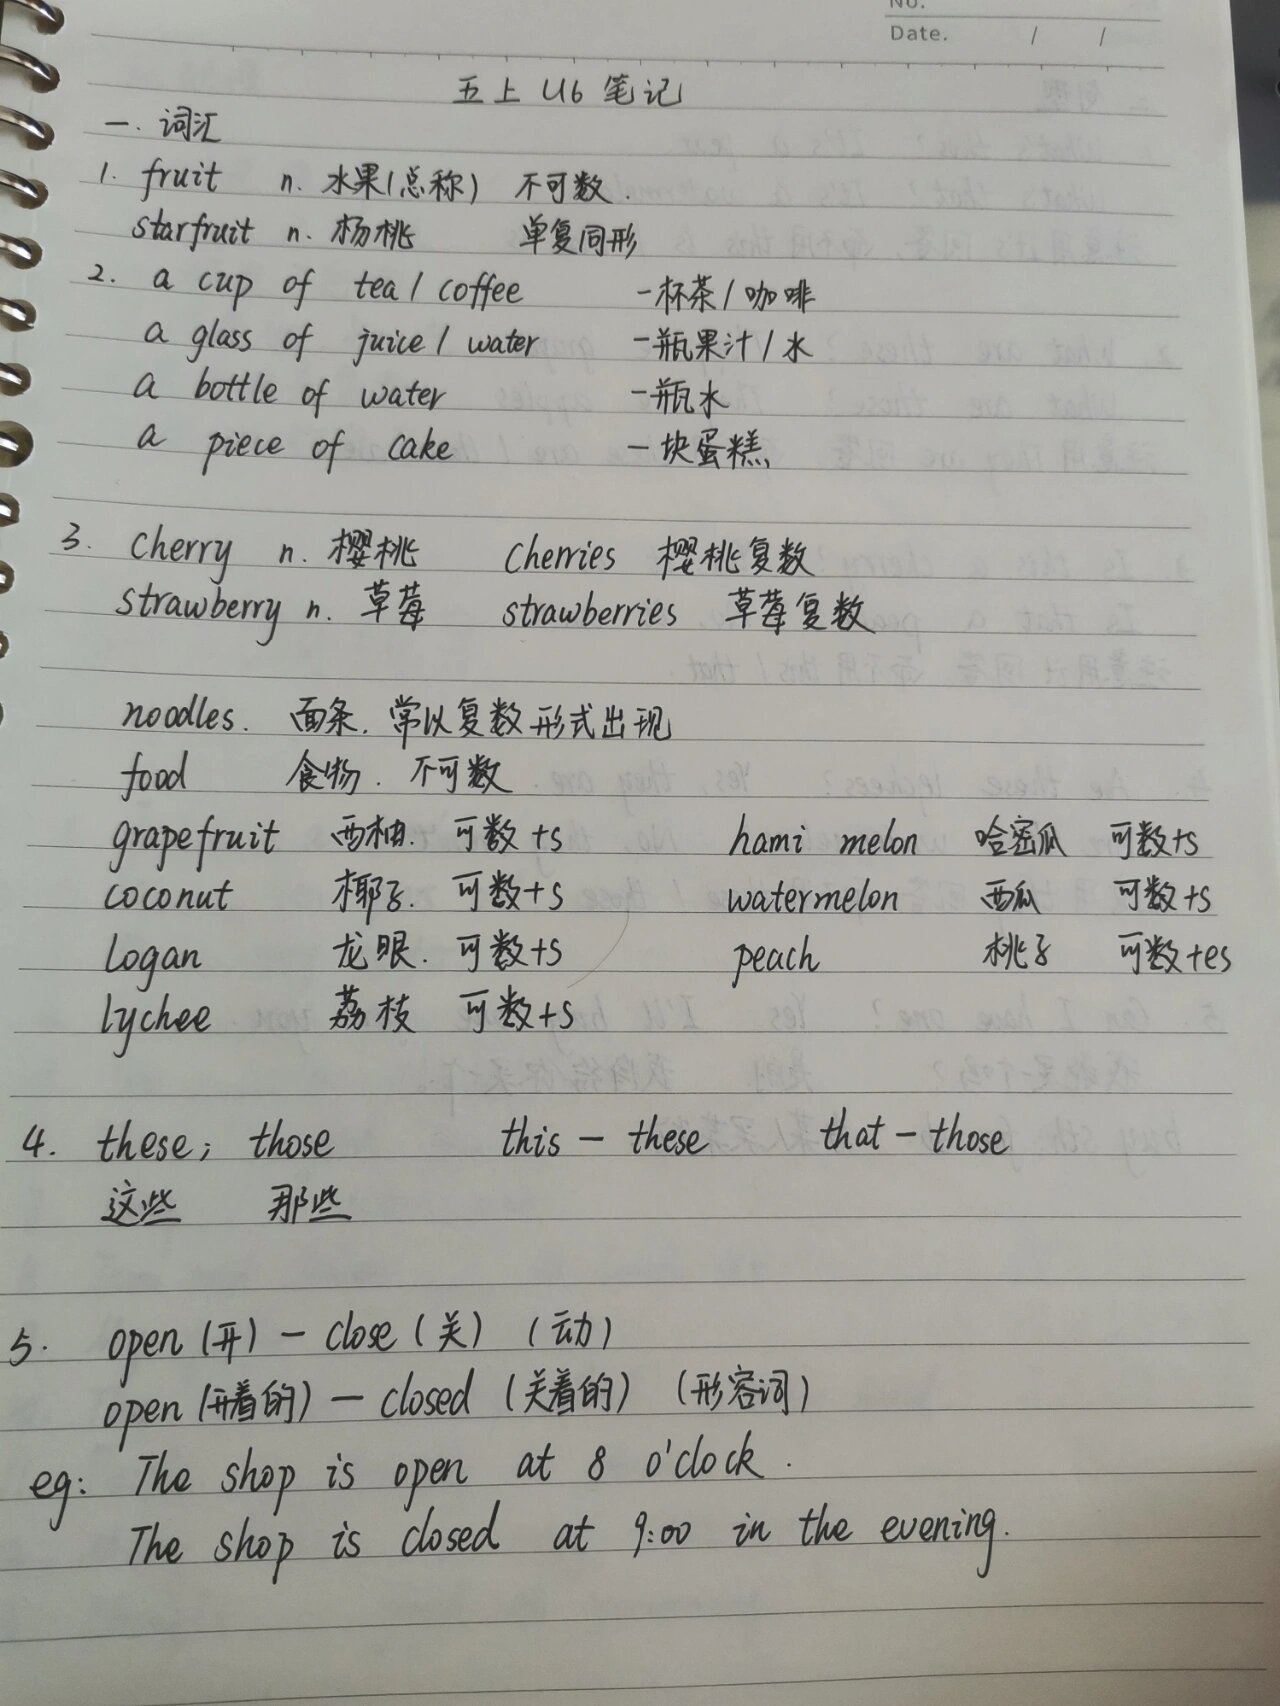 No.
Date. / /
五上 U6 笔记
一. 词汇
1. fruit n. 水果(总称) 不可数.
starfruit n. 杨桃 单复同形
2. a cup of tea / coffee 一杯茶 / 咖啡
a glass of juice / water 一瓶果汁 / 水
a bottle of water 一瓶水
a piece of cake 一块蛋糕
3. cherry n. 樱桃 cherries 樱桃复数
strawberry n. 草莓 strawberries 草莓复数
noodles. 面条. 常以复数形式出现
food 食物. 不可数
grapefruit 西柚. 可数+s hami melon 哈密瓜 可数+s
coconut 椰子. 可数+s watermelon 西瓜 可数+s
logan 龙眼. 可数+s peach 桃子 可数+es
lychee 荔枝 可数+s
4. these; those this — these that — those
这些 那些
5. open (开) — close (关) (动)
open (开着的) — closed (关着的) (形容词)
eg: The shop is open at 8 o'clock.
The shop is closed at 9:00 in the evening.